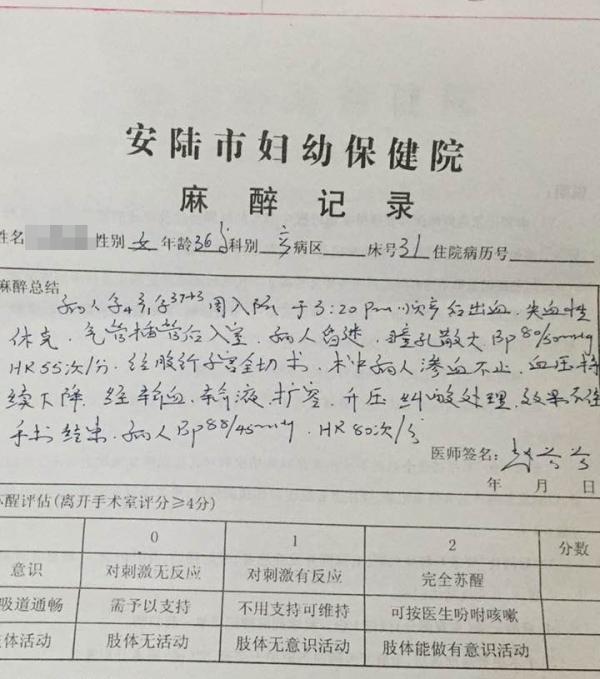 安陆市妇幼保健院
麻醉记录
姓名 性别 女 年龄 36岁 科别 产 病区 床号 31 住院病历号
麻醉总结
病人孕4产1孕37+3周入院 于3:20pm顺产后出血、失血性
休克、气管插管后入室、病人昏迷、瞳孔散大、Bp80/50mmHg
HR55次/分、经腹行子宫全切术、术中病人渗血不止、血压持
续下降、经输血、输液、扩容、升压、纠酸处理、效果不佳
手术结束、病人Bp88/45mmHg、HR80次/分
医师签名:
年 月 日
苏醒评估(离开手术室评分≥4分)
0 1 2 分数
意识 对刺激无反应 对刺激有反应 完全苏醒
吸道通畅 需予以支持 不用支持可维持 可按医生吩咐咳嗽
肢体活动 肢体无活动 肢体无意识活动 肢体能做有意识活动